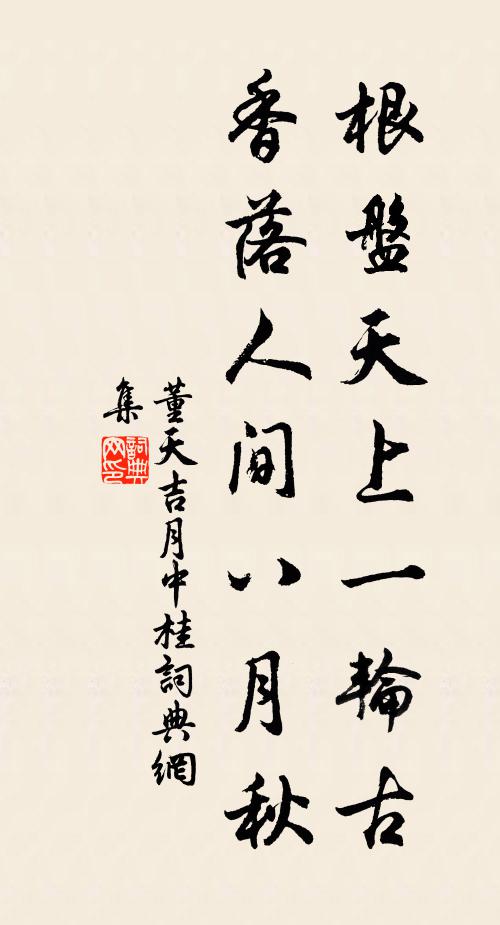 根盤天上一輪古
香落人間八月秋
董天吉月中桂詞典網
集
詞典網印